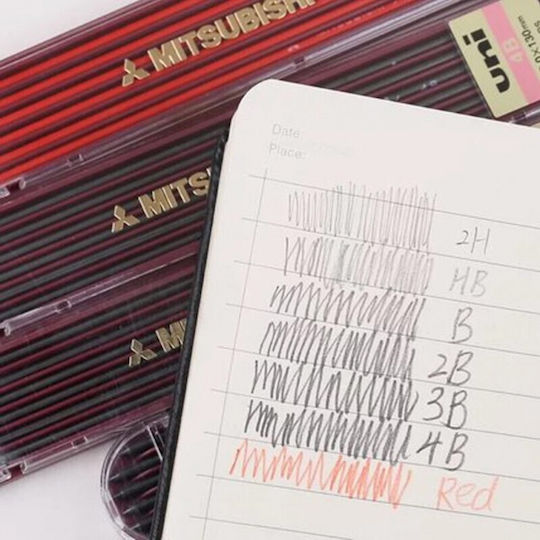 MITSUBISHI
uni
4B
MITS
MI
Date:
Place:
2H
HB
B
2B
3B
4B
Red